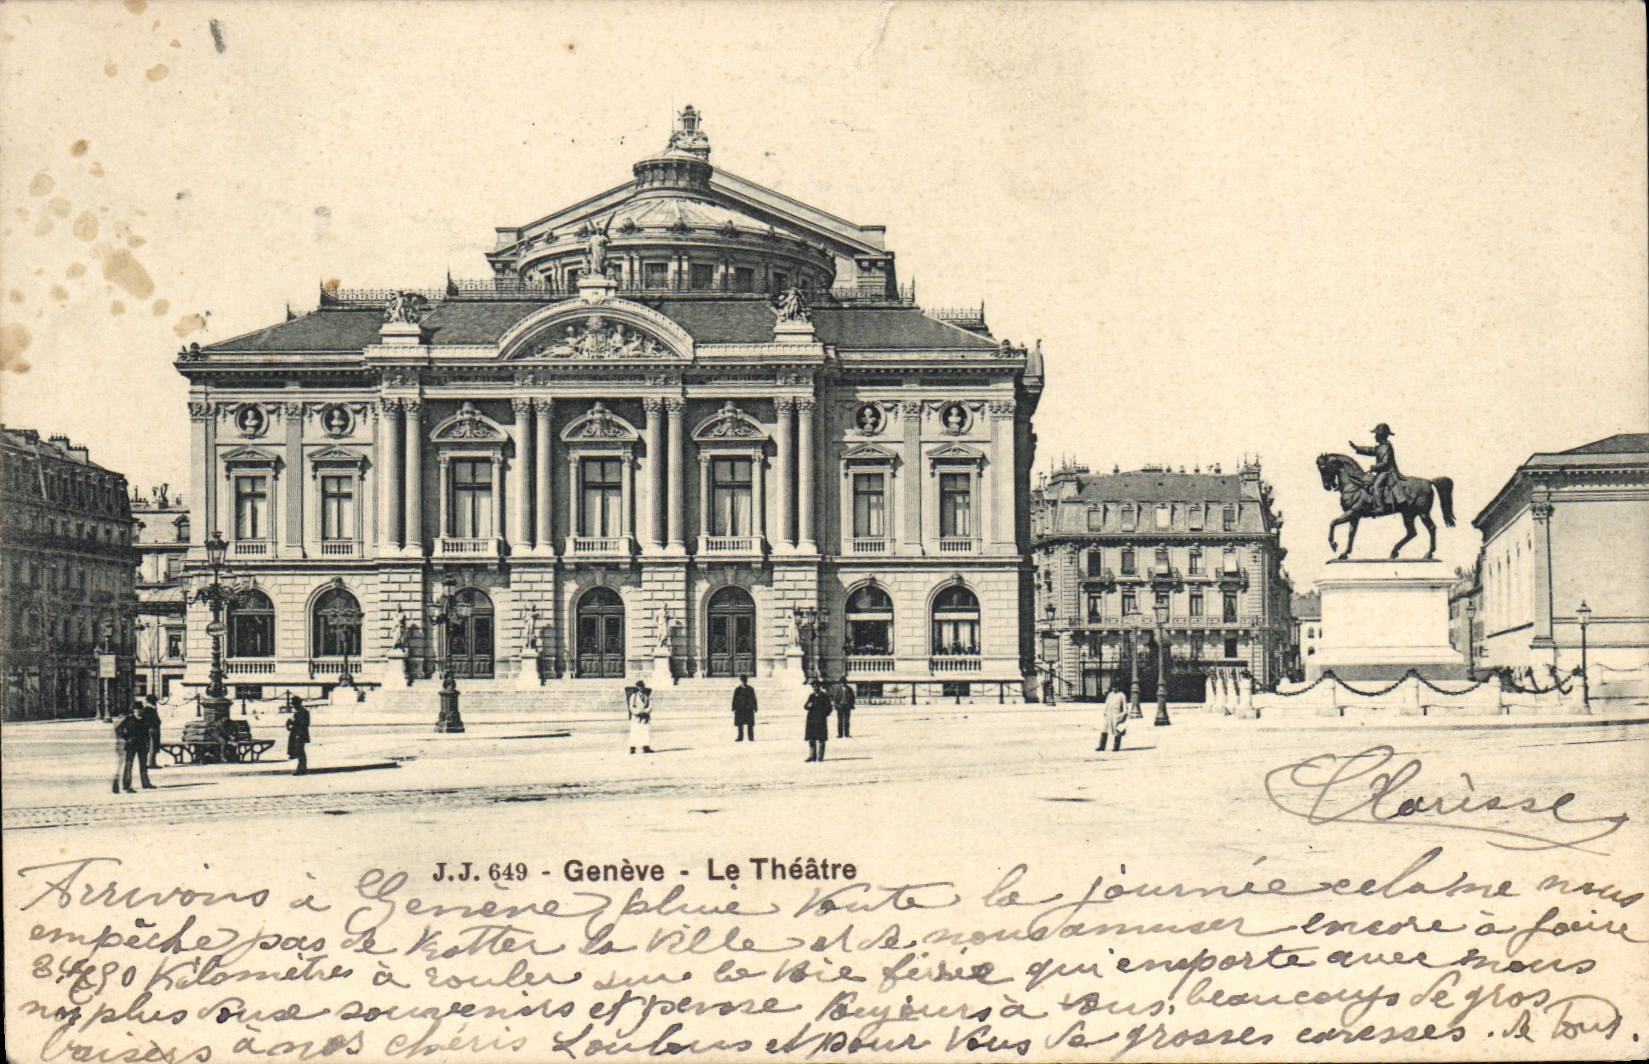 Clarisse
J.J. 649 - Genève - Le Théâtre
Arrivons à Genève, pluie toute la journée cela ne nous
empêche pas de trotter la ville et de nous amuser encore à faire
Kilomètres à rouler sur la voie qui emporte avec nous
nos plus doux souvenirs et pense toujours à vous, beaucoup de gros
baisers à nos chéris Loulous et pour vous de grosses caresses. de Tous.